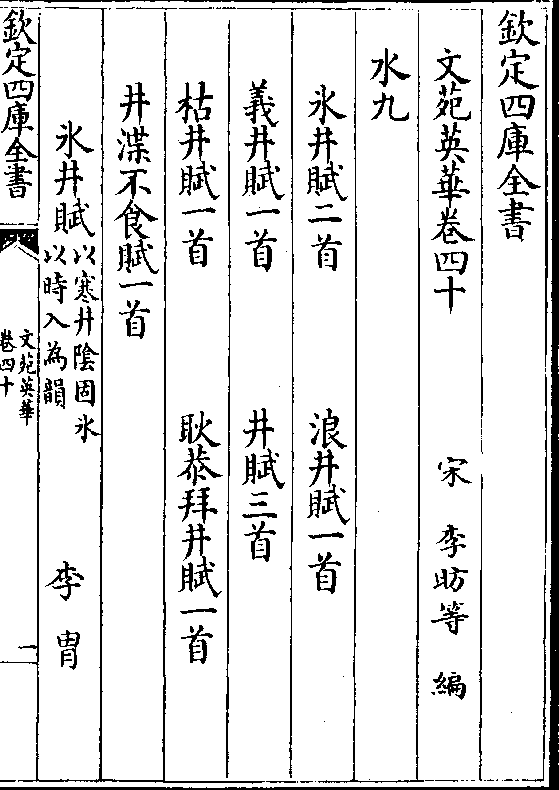 欽定四庫全書
文苑英華卷四十
宋 李昉等 編
水九
氷井賦二首 浪井賦一首
義井賦一首 井賦三首
枯井賦一首 耿恭拜井賦一首
井渫不食賦一首
氷井賦 以寒井陰固氷
以時入為韻 李冑
欽定四庫全書
文苑英華
卷四十
一